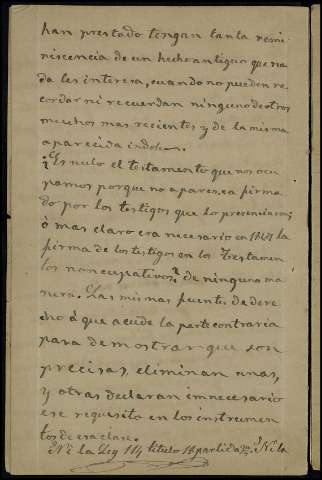 han prestado tengan tanta remi-
niscencia de un hecho antiguo que na-
da les interesa, cuando no pueden re-
cordar ni recuerdan ninguno de otros
muchos mas recientes y de la misma
aparecida indole.
¿Es nulo el testamento que nos ocu
pamos porque no aparezca firma
do por los testigos que lo presenciaron;
ó mas claro era necesario en 1841 la
firma de los testigos en los Testamen
tos noncupativos? de ninguna ma
nera. Las mismas fuentes de dere
cho á que acude la parte contraria
para demostrar que son
precisas, eliminan unas,
y otras declaran innecesario
ese requisito en los instrumen
tos de esa clase.
Ni la Ley 114 titulo 18 partida 3ª Ni la